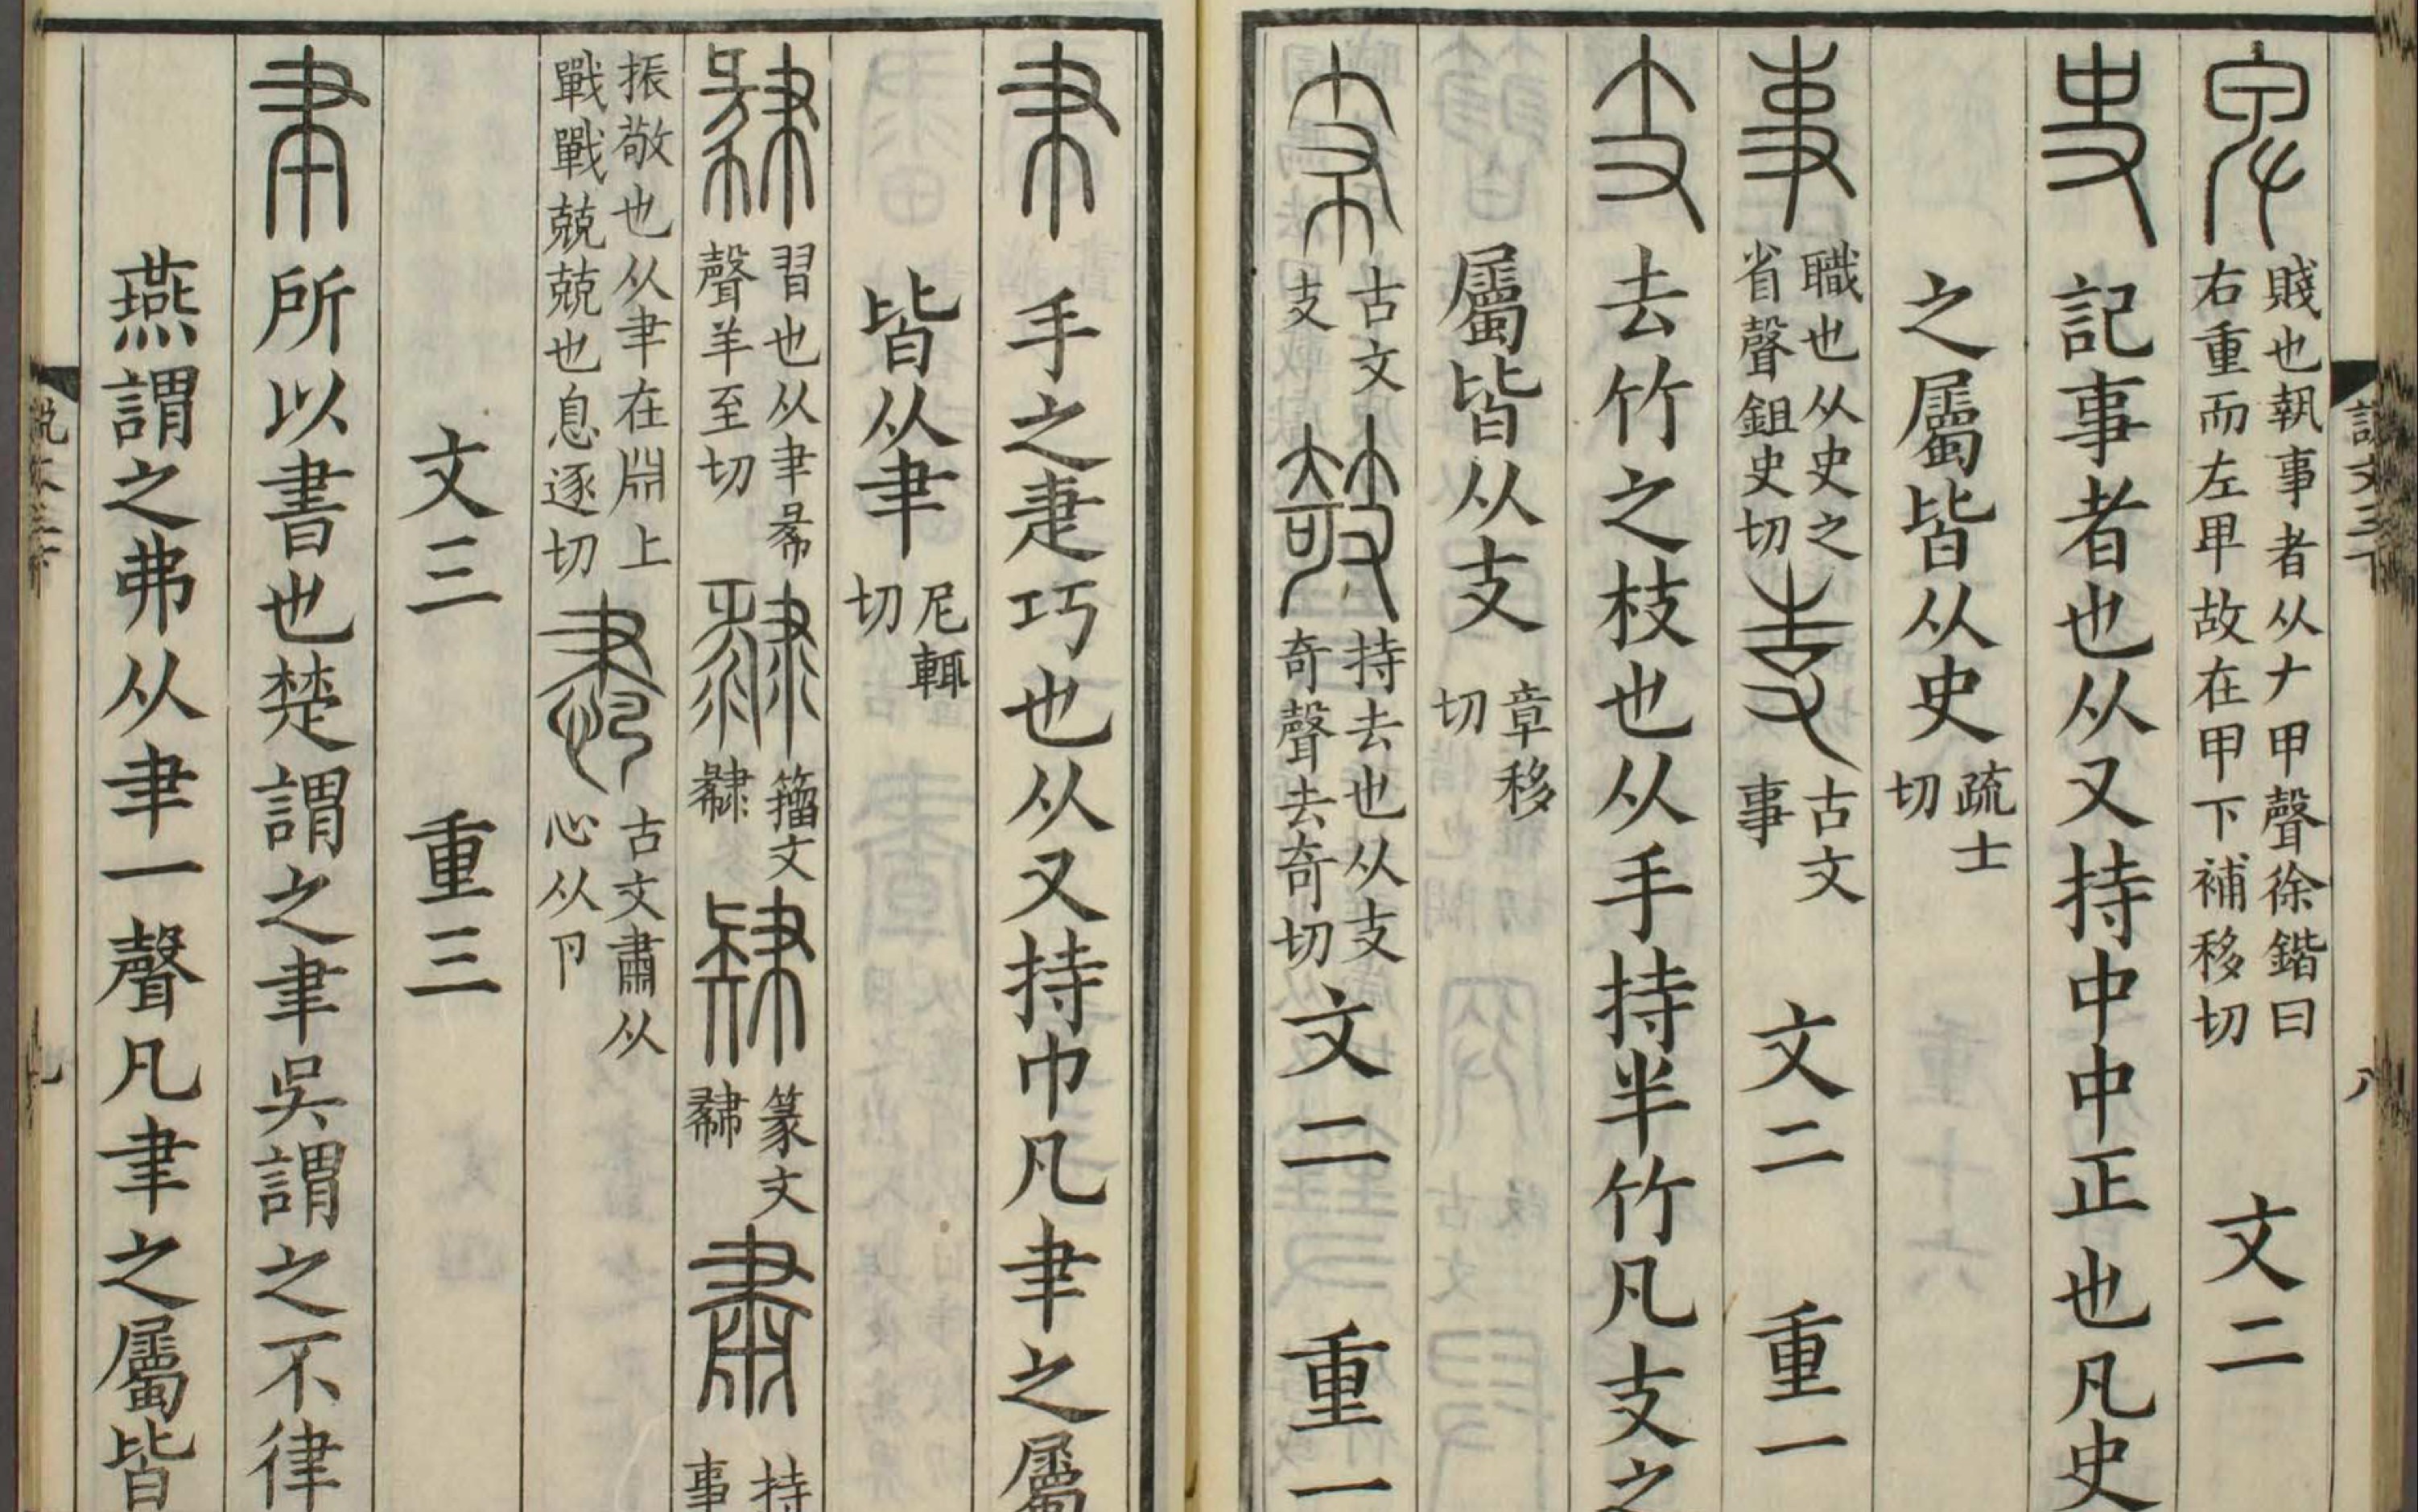 說文三下 八
卑 賤也執事者从𠂇甲聲徐鍇曰右重而左卑故在甲下補移切 文二
史 記事者也从又持中中正也凡史
之屬皆从史 疏士切
事 職也从史之省聲鉏史切 𠭏 古文事 文二 重一
支 去竹之枝也从手持半竹凡支之
屬皆从支 章移切
𠦙 古文支 攲 持去也从支奇聲去奇切 文二 重一
𦘒 手之疌巧也从又持巾凡𦘒之屬
皆从𦘒 尼輒切
習也从𦘒㣇聲羊至切 籀文 篆文 肅 持事
振敬也从𦘒在𣶒上戰戰兢兢也息逐切 古文肅从心从卪
文三 重三
聿 所以書也楚謂之聿吳謂之不律
燕謂之弗从𦘒一聲凡聿之屬皆